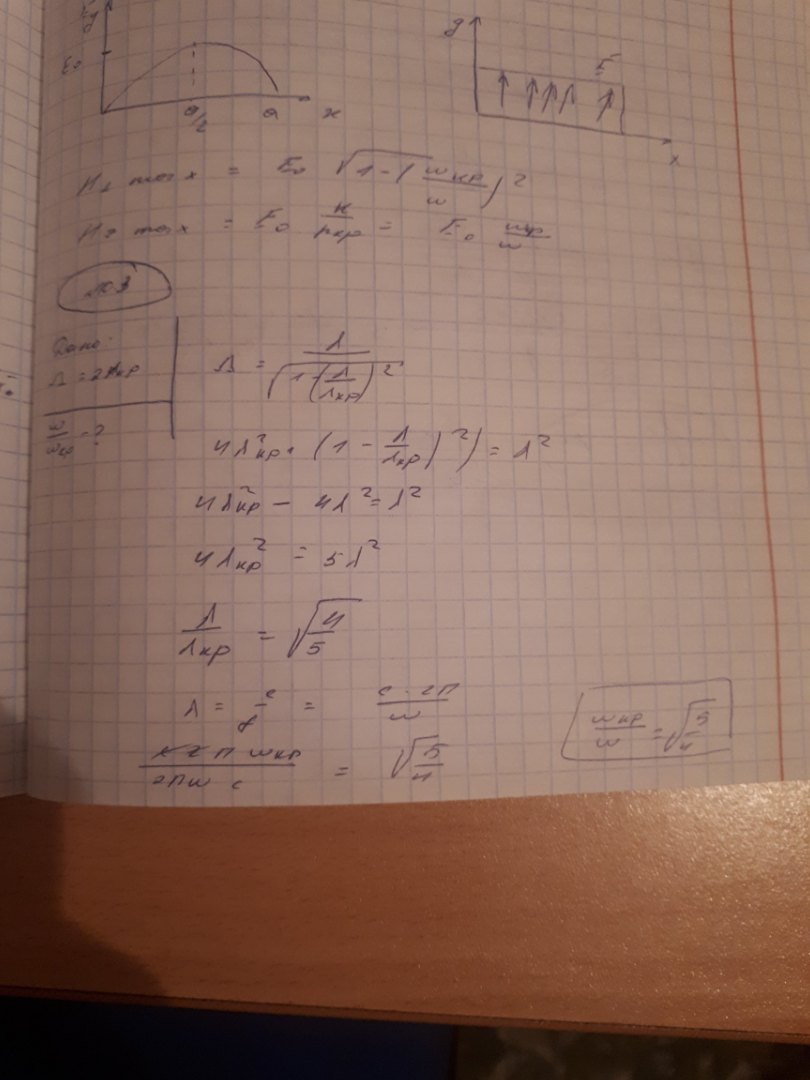 E₀
a/2 a x
y
E
x
max = E₀ √(1-(ωкр/ω)²
max = E₀ = E₀ ωкр/ω
Дано:
Λ = 2λкр
ω/ωкр - ?
Λ = λ/√(1-(λ/λкр)²
4λ²кр · (1 - λ/λкр)²) = λ²
4λ²кр - 4λ² = λ²
4λкр² = 5λ²
λ/λкр = √(4/5)
λ = c/f = c · 2π/ω
2π ωкр/2πω c = √(5/4)
ωкр/ω = √(5/4)